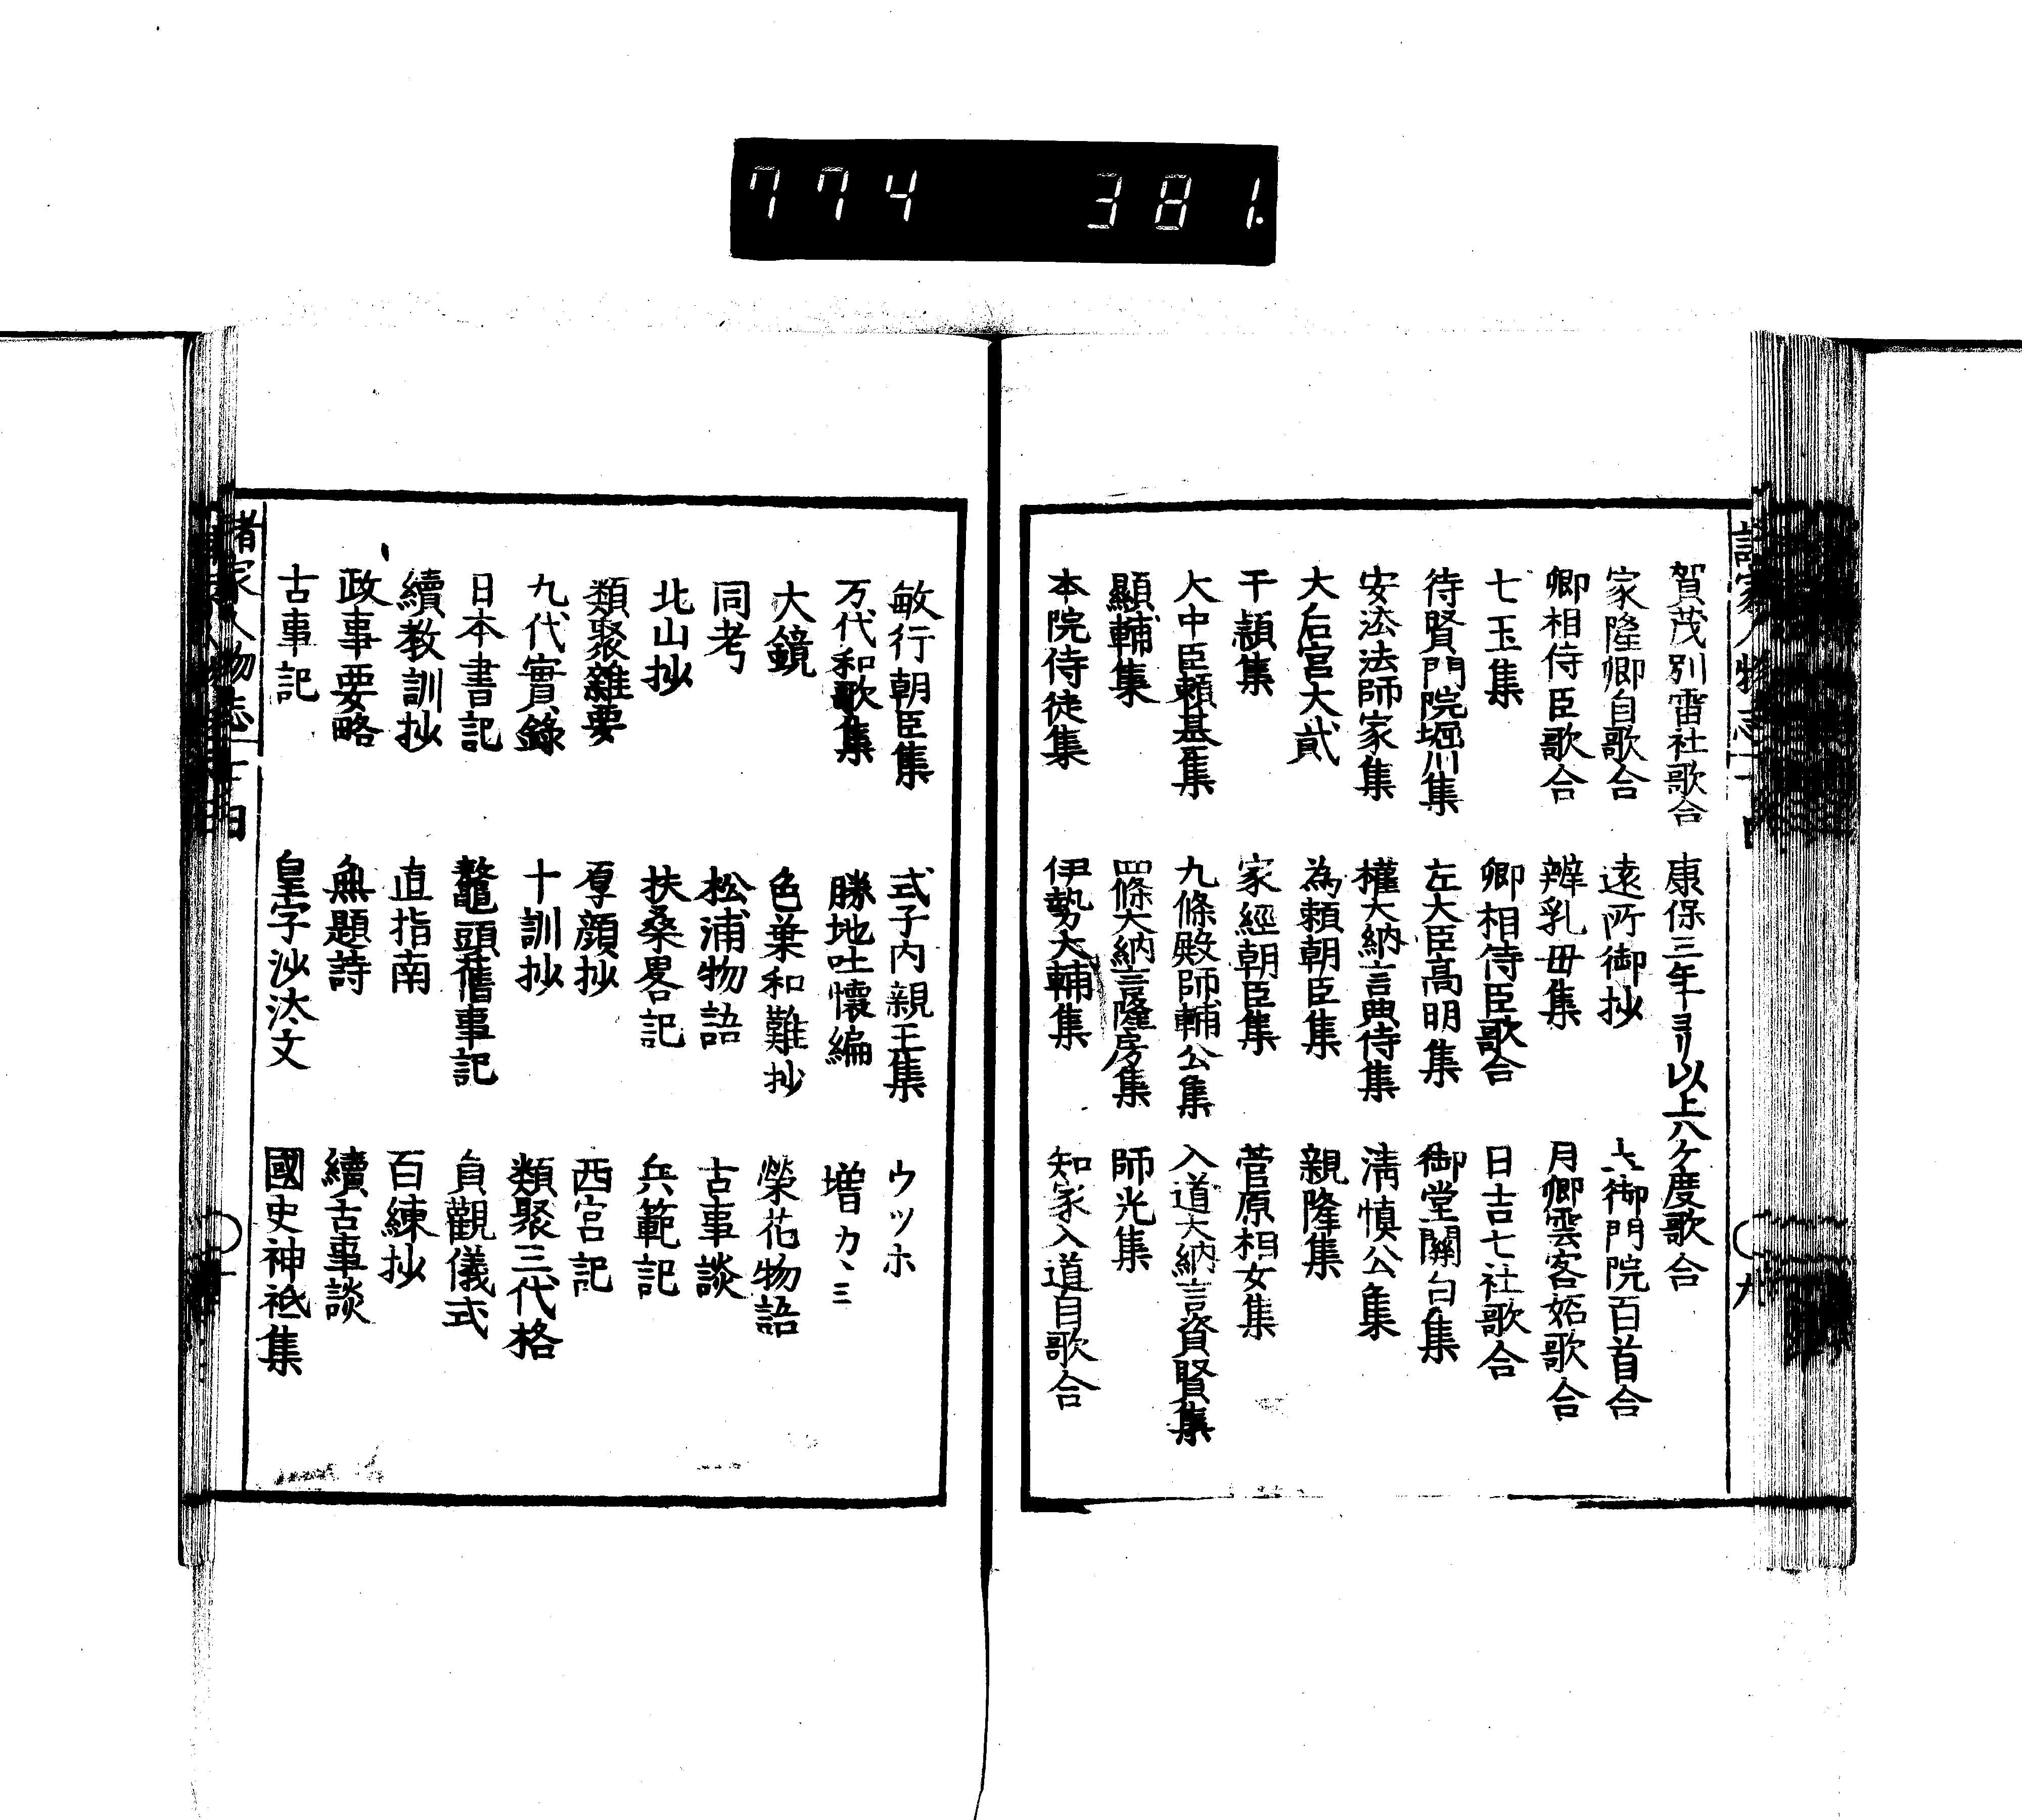 774 381.
賀茂別雷社歌合 康保三年ヨリ以上八ケ度歌合
家隆卿自歌合 遠所御抄 土御門院百首合
卿相侍臣歌合 辨乳母集 月卿雲客妬歌合
七玉集 卿相侍臣歌合 日吉七社歌合
待賢門院堀川集 左大臣高明集 御堂關白集
安法法師家集 權大納言典侍集 淸慎公集
大后宮大貳 為頼朝臣集 親隆集
千頴集 家經朝臣集 菅原相女集
大中臣頼基集 九條殿師輔公集 入道大納言資賢集
顯輔集 四條大納言隆房集 師光集
本院侍従集 伊勢大輔集 知家入道自歌合
敏行朝臣集 式子内親王集 ウツホ
万代和歌集 勝地吐懷編 増カヽミ
大鏡 色葉和難抄 榮花物語
同考 松浦物語 古事談
北山抄 扶桑畧記 兵範記
類聚雜要 厚顔抄 西宮記
九代實錄 十訓抄 類聚三代格
日本書記 鼇頭舊事記 貞觀儀式
續教訓抄 直指南 百練抄
政事要略 無題詩 續古事談
古事記 皇字沙汰文 國史神祇集
諸家人物志